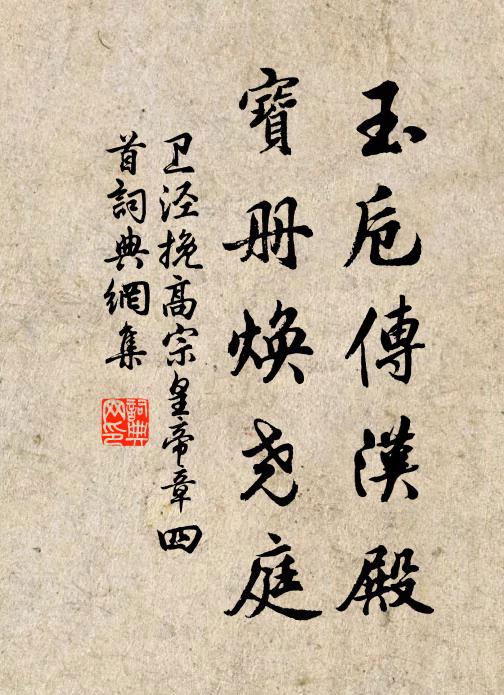 玉卮傳漢殿
寶册焕尧庭
卫泾挽高宗皇帝章四
首詞典網集
詞典网印